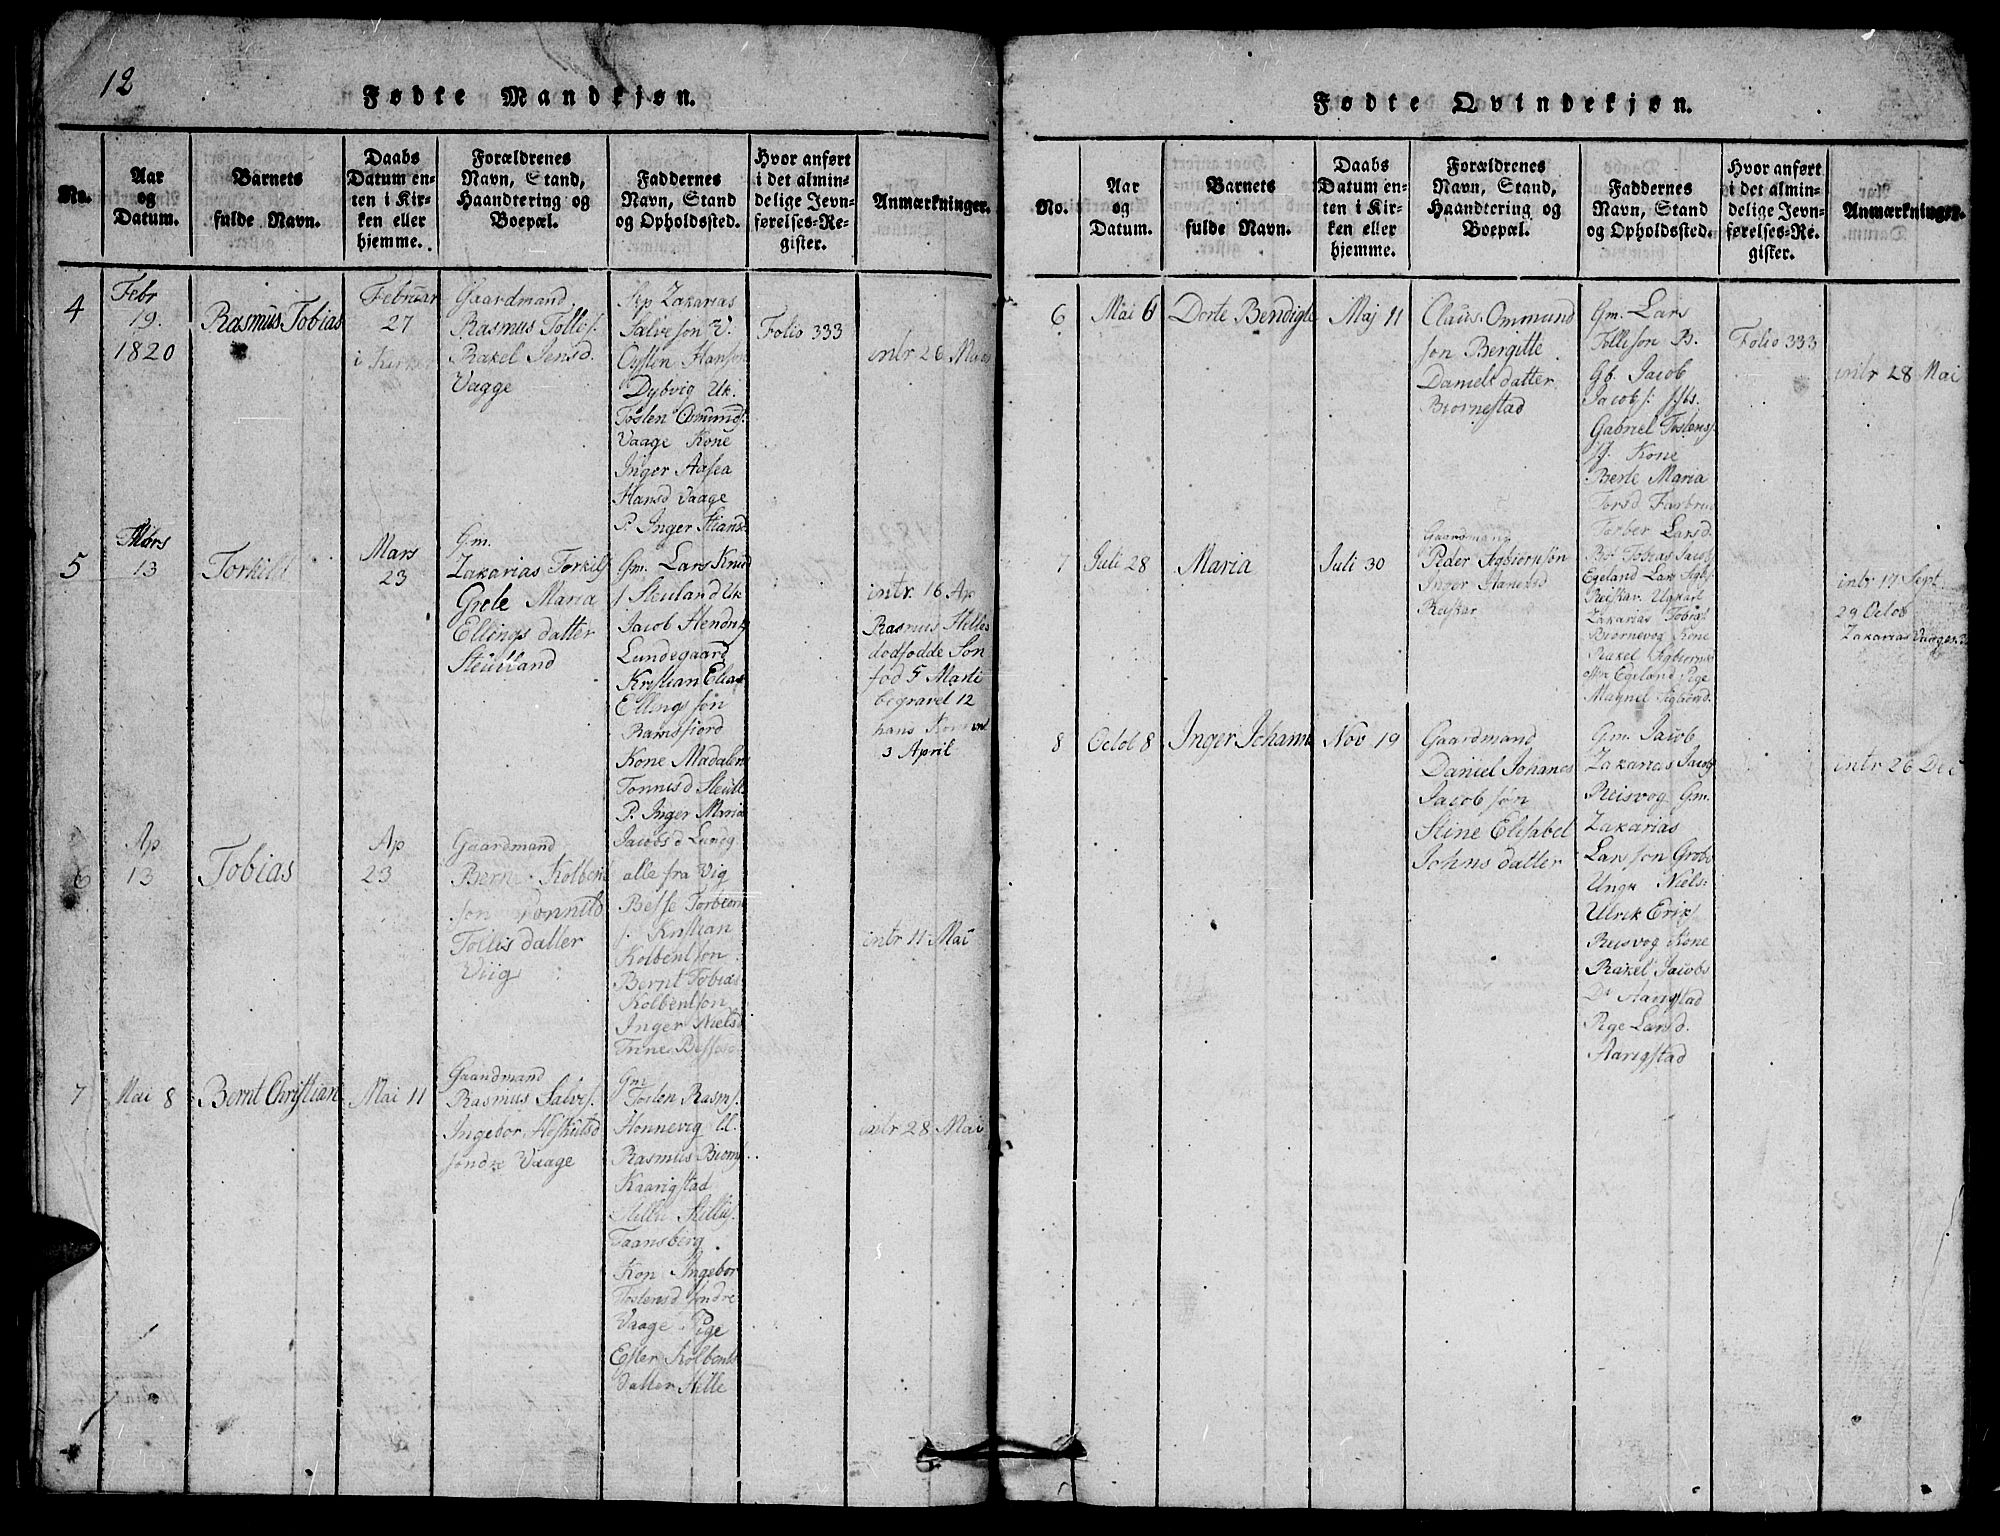 12
Fødte Mandkjøn.
No.
Aar
og
Datum.
Barnets
fulde Navn.
Daabs
Datum en-
ten i Kir-
ken eller
hjemme.
Forældrenes
Navn, Stand,
Haandtering og
Boepæl.
Faddernes
Navn, Stand
og Opholdssted.
Hvor anført
i det almin-
delige Jevn-
førelses-Re-
gister.
Anmærkninger.
4
Febr
19.
1820
Rasmus Tobias
Februar
27
i Kirken
Gaardmand
Rasmus Tolles.
Rakel Jensd.
Vaage
Zakarias
Salveson V.
Oysten Hanson
Dybvig Uk.
Tosten Omund
Vaage Kone
Inger Aasea
Hansd Vaage
P. Inger Stiansd
Folio 333
intr 26 Mars
5
Mars
13
Torkild
Mars
23
Gm.
Zakarias Torkils
Grete Maria
Ellings datter
Steutland
Gm. Lars Knud
s. Steuland Uk
Jacob Hendriks
Lundegaard
Kristian Elias
Ellingsøn
Ramsfiord
Kone Madalen
Tonnisd Steutl
P. Inger Maria
Jacobsd Lundg
intr. 16 Ap
Rasmus Stilles
dodfodde Son
fod 5 Marti
begravet 12
hans Kone intr
3 April
6
Ap
13
Tobias
Ap
23
Gaardmand
Bernt Kolbens
son Tonnesd
Tollis datter
Viig
alle fra Vig
Besse Torbiorn
s. Kristian
Kolbentson
Bernt Tobias
Kolbentson
Inger Nielsd
Trine Bessesd
intr 11 Mai
7
Mai 8
Bernt Christian
Mai 11
Gaardmand
Rasmus Salves.
Ingebor Aseltsd
sondre Vaage
Gm
Tosten Rasms.
Honnevig U.
Rasmus Biorns
Kaarigstad
Stille Stilles.
Taansberg
Kon Ingebor
Tostensd sondre
Vaage Pige
Ester Kolbents
datter Stille
intr 28 Mai
Fødte Qvindekjøn.
No.
Aar
og
Datum.
Barnets
fulde Navn.
Daabs
Datum en-
ten i Kir-
ken eller
hjemme.
Forældrenes
Navn, Stand,
Haandtering og
Boepæl.
Faddernes
Navn, Stand
og Opholdssted.
Hvor anført
i det almin-
delige Jevn-
førelses-Re-
gister.
Anmærkninger.
6
Mai 6
Dorte Bendigte
Maj 11
Claus Ommund
son Bergitte
Daniels datter
Biornestad
Gm. Lars
Tollison B.
Gb. Jacob
Jacobs.
Gabriel Tostens
Kone
Berte Maria
Torsd
Torber Larsd.
Folio 333
intr 28 Mai
7
Juli 28
Maria
Juli 30
Gaardmand
Peder Segbiornsøn
Inger Hansd
Reiskar
Tobias Jacobs
Egeland Lars Segb.
Reiskar Ugkarl
Zakarias Tobias
Biornevog Kone
Rakel Segbiorns
Egeland Pige
Magnel Segbiornsd.
intr 17 Sept
29 Octob
Zakarias
8
Octob 8
Inger Johanne
Nov 19
Gaardmand
Daniel Johanes
Jacob søn
Stine Elisabet
Johns datter
Gm. Jacob
Zakarias Jacobs
Reisvog Gm.
Zakarias
Larsson Grobe
Ungk Niels
Ulrik Eriks
Reisvog Kone
Rakel Jacobs
Dr Aarigstad
Pige Larsd.
Aarigstad
intr 26 Dec